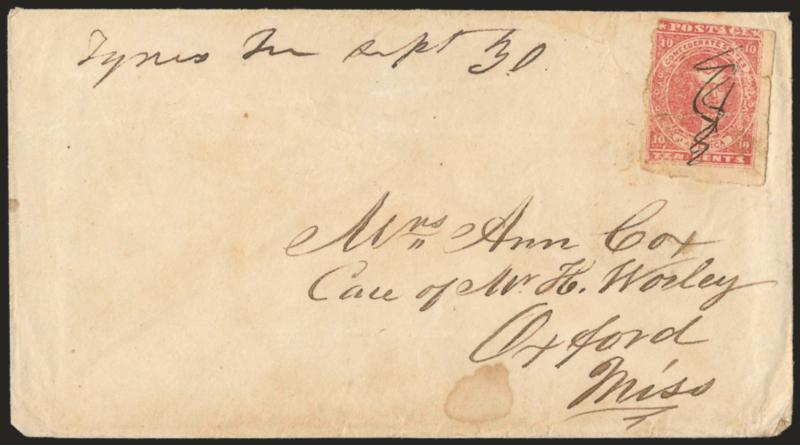 Tynes Ten Sept 30
POSTAGE
10 10
CONFEDERATE STATES
10 10
TEN CENTS
Mrs Ann Cox
Care of Mr. H. Worley
Oxford
Miss